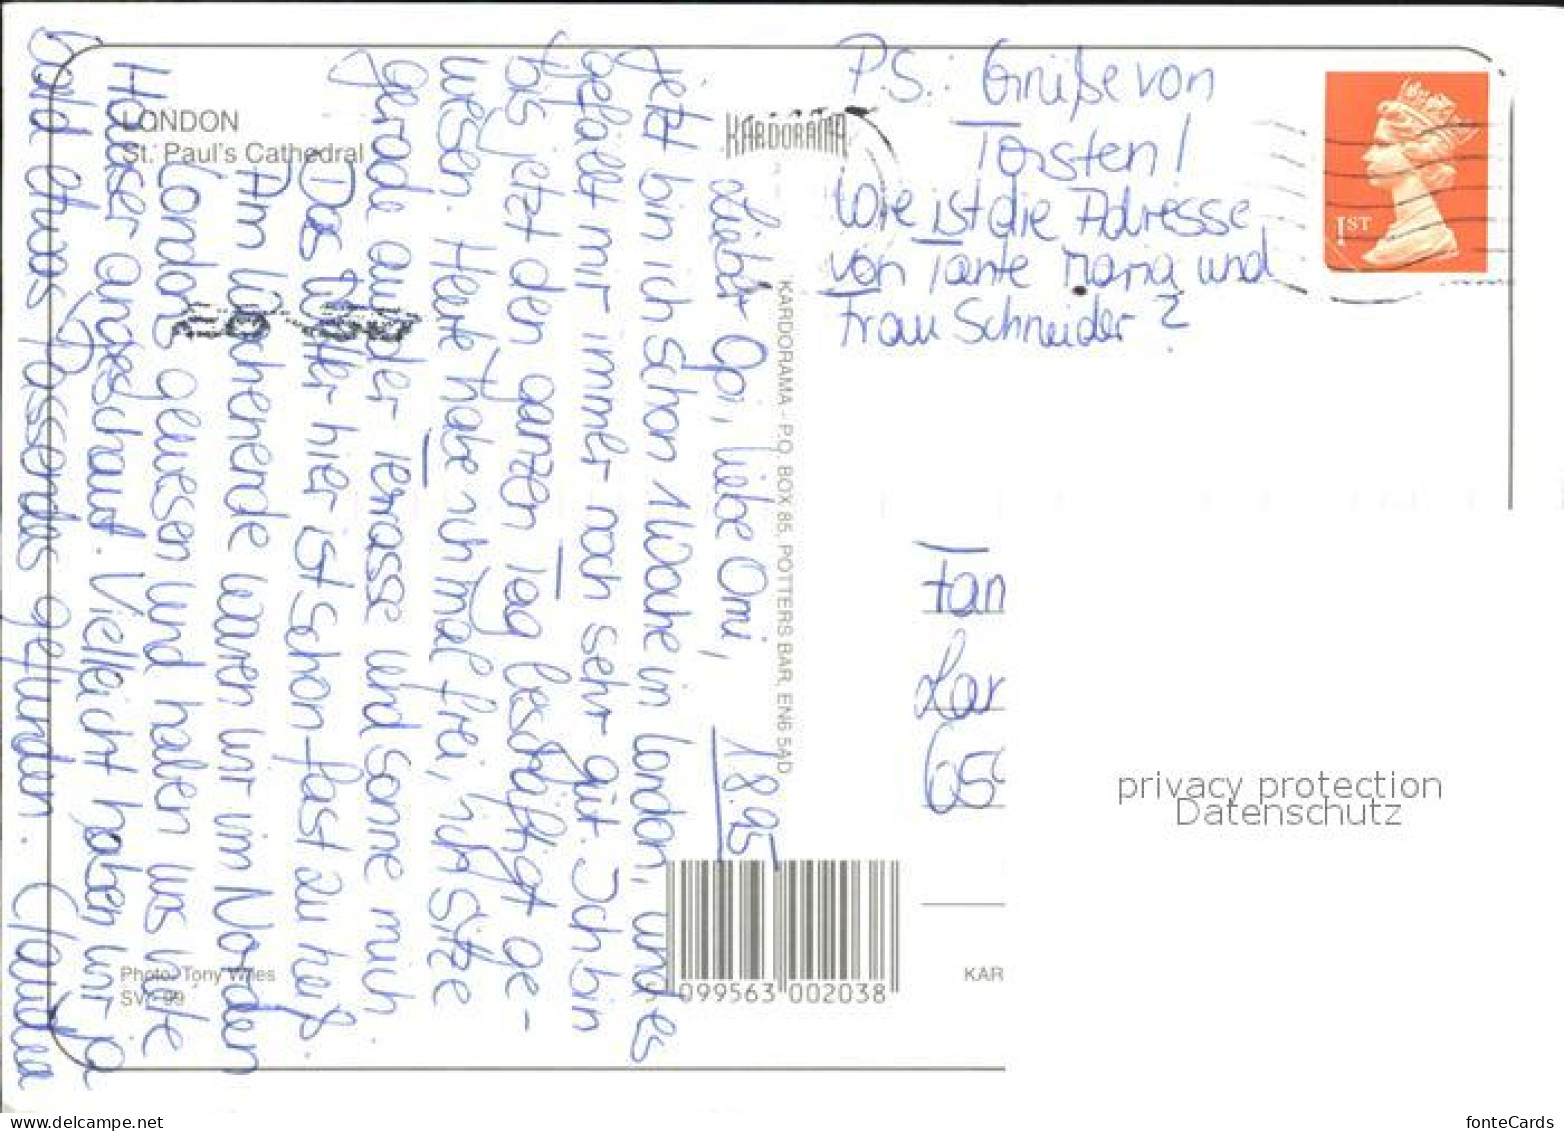 LONDON
St. Paul's Cathedral
KARDORAMA
P.S.: Grüße von
Torsten!
Wie ist die Adresse
von Tante Maria und
Frau Schneider?
1ST
1.8.95
Lieber Opi, liebe Omi,
jetzt bin ich schon 1 Woche in London, und es
gefällt mir immer noch sehr gut. Ich bin
bis jetzt den ganzen Tag beschäftigt ge-
wesen. Heute habe ich mal frei, ich sitze
gerade auf der Terrasse und sonne mich.
Das Wetter hier ist schon fast zu heiß.
Am Wochenende waren wir im Norden
Londons gewesen und haben uns viele
Häuser angeschaut. Vielleicht haben wir ja
bald etwas Passendes gefunden. Claudia
KARDORAMA - P.O. BOX 85, POTTERS BAR, EN6 5AD
Fam
Lar
65
privacy protection
Datenschutz
Photo: Tony Wiles
SV 99
099563 002038
KAR
www.delcampe.net
fonteCards